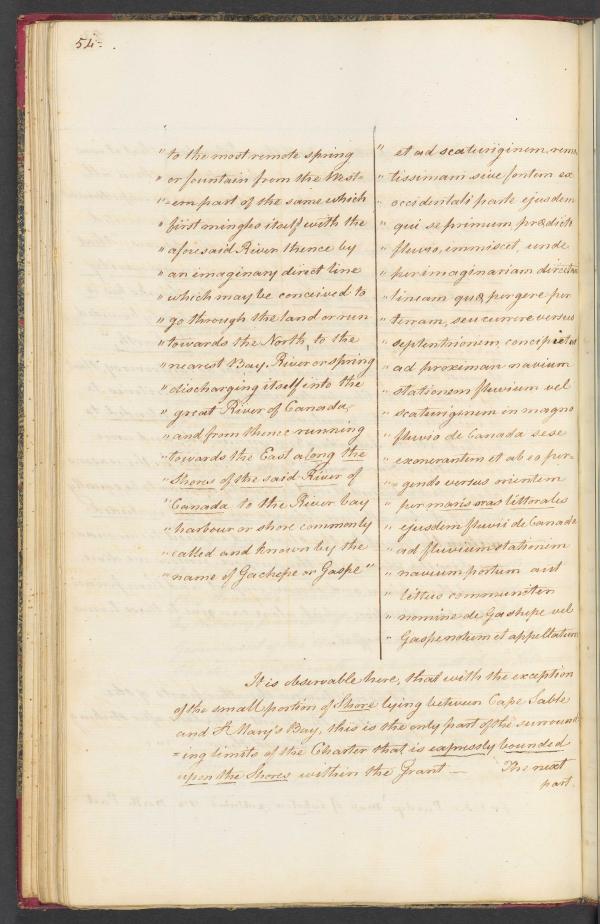 54.
" to the most remote spring
" or fountain from the West
" =ern part of the same which
" first mingles itself with the
" aforesaid River thence by
" an imaginary direct line
" which may be conceived to
" go through the land or run
" towards the North, to the
" nearest Bay, River or spring
" discharging itself into the
" great River of Canada,
" and from thence running
" towards the East along the
" Shores of the said River of
" Canada to the River bay
" harbour or shore commonly
" called and known by the
" name of Gachepe or Gaspe"
" et ad scaturiginem remo
" tissimam sive fontem ex
" occidentali parte ejusdem
" qui se primum prædicto
" fluvio, immiscet, unde
" per imaginariam directam
" lineam quæ pergere per
" terram, seu currere versus
" septentrionem concipietur
" ad proximan navium
" stationem fluvium vel
" scaturiginem in magno
" fluvio de Canada sese
" exonerantem et ab eo per-
" gendo versus orientem
" per maris oras littorales
" ejusdem fluvii de Canada
" ad fluvium stationem
" navium portum aut
" littus communiter
" nomine de Gashepe vel
" Gaspe notum et appellatum
It is observable here, that with the exception
of the small portion of Shore lying between Cape Sable
and St Mary's Bay, this is the only part of the surround
=ing limits of the Charter that is expressly bounded
upon the Shores within the Grant — The next
part